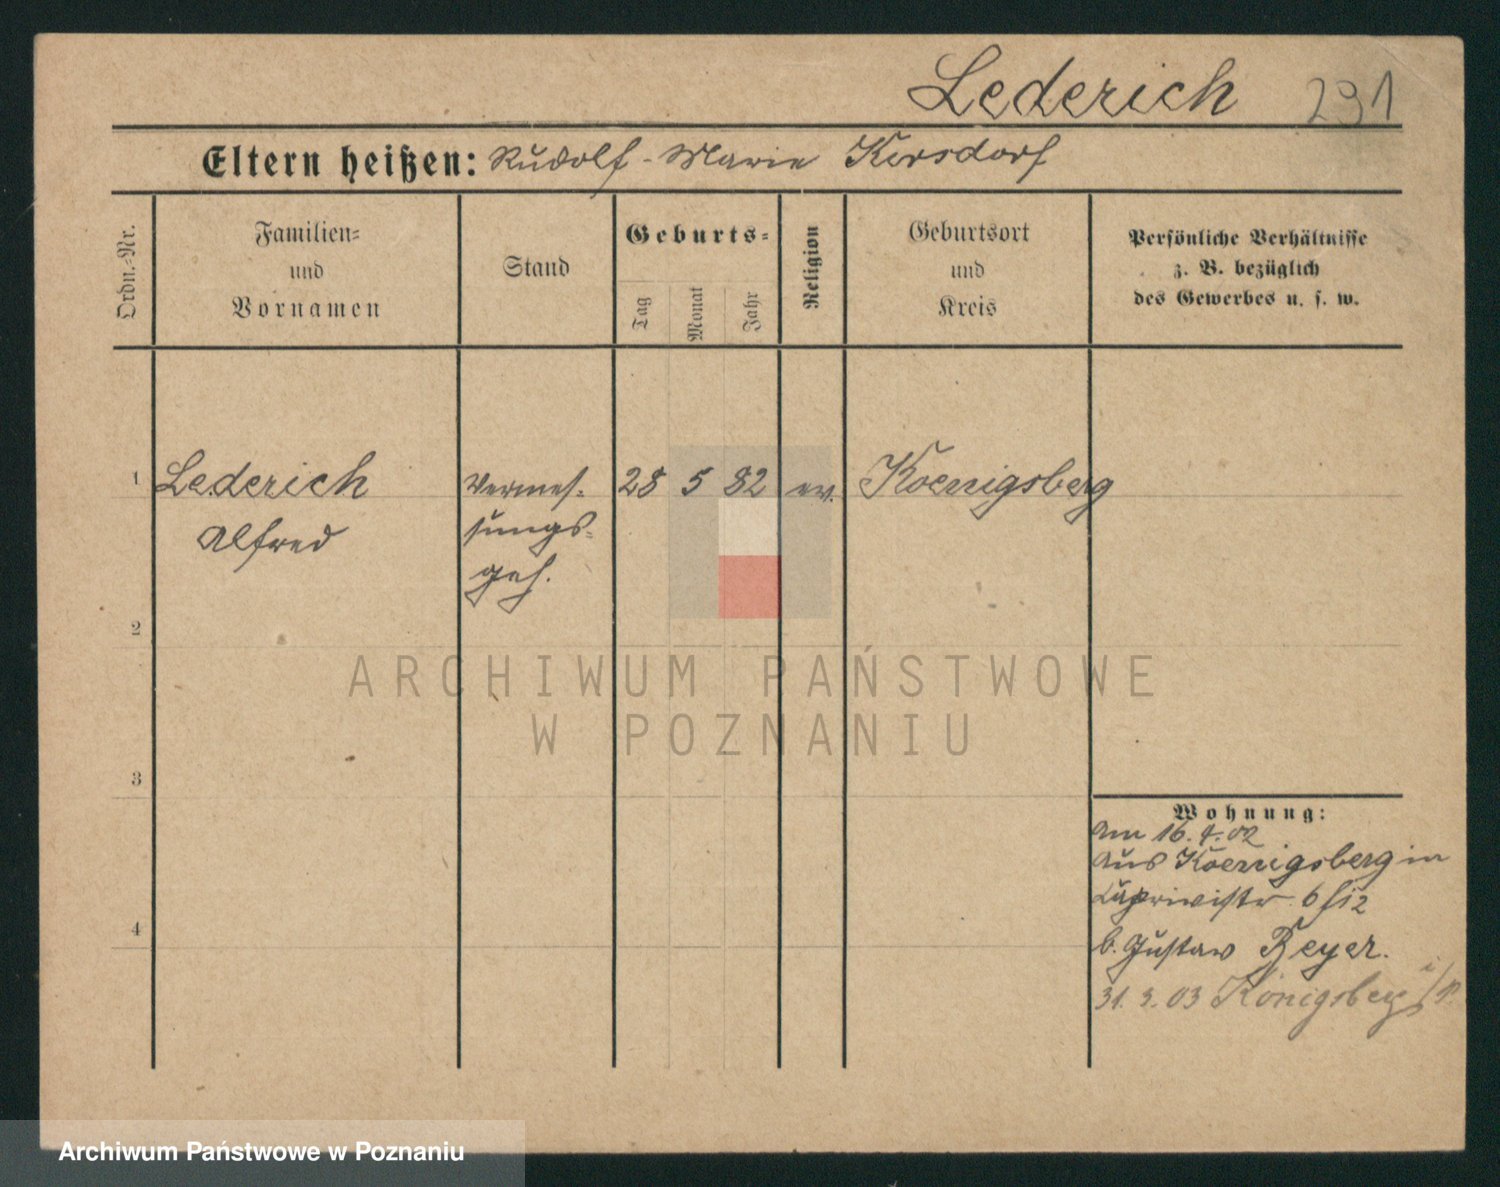 Lederich 291
Eltern heißen: Rudolf - Marie Korsdorf
Ordn.-Nr.
Familien-
und
Vornamen
Stand
Geburts-
Tag
Monat
Jahr
Religion
Geburtsort
und
Kreis
Persönliche Verhältnisse
z. B. bezüglich
des Gewerbes u. s. w.
1 Lederich Vermes- 28 5 82 ev. Koenigsberg
Alfred sungs-
geh.
2
3
4
ARCHIWUM PAŃSTWOWE
W POZNANIU
Wohnung:
Am 16. 4. 02
aus Koenigsberg in
Caprivistr 6
b. Gustav Beyer.
31. 3. 03 Königsberg i/P.
Archiwum Państwowe w Poznaniu